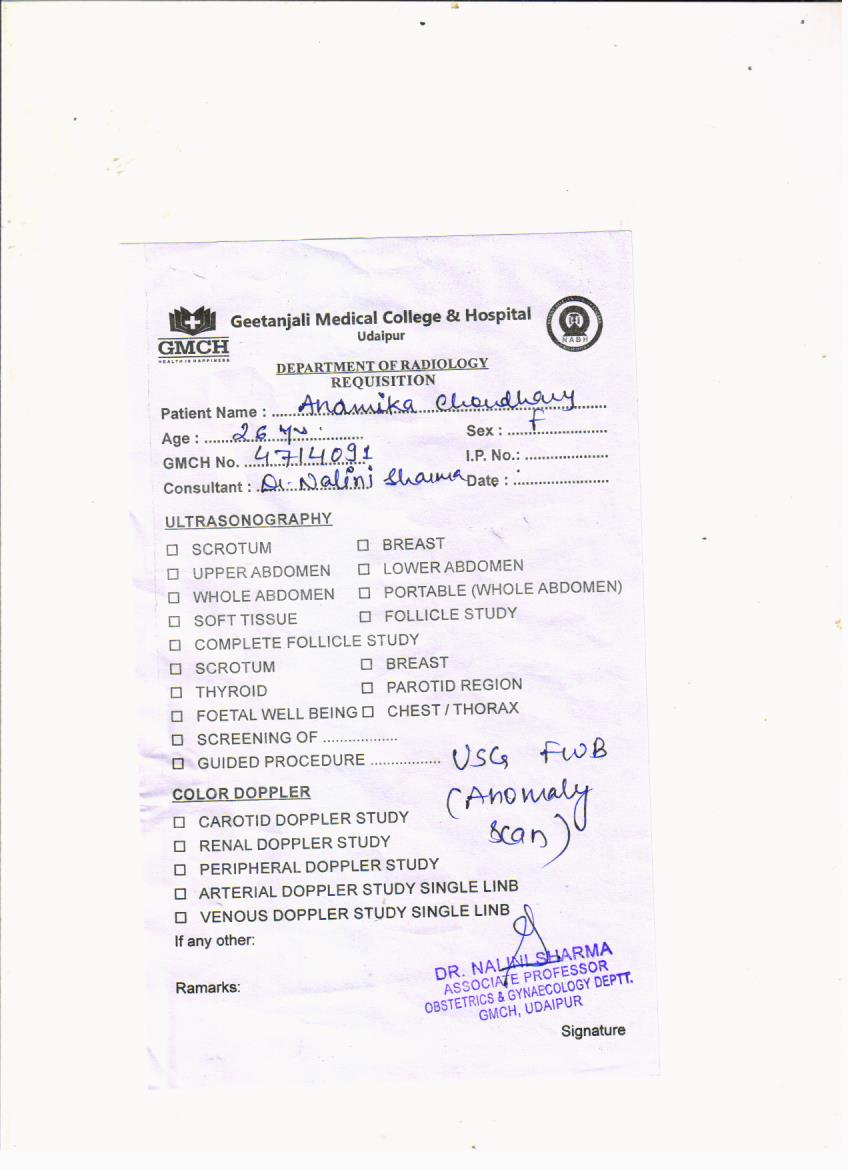 GMCH
HEALTH IS HAPPINESS
Geetanjali Medical College & Hospital
Udaipur
NABH
DEPARTMENT OF RADIOLOGY
REQUISITION
Patient Name : Anamika Choudhary
Age : 26 yrs. Sex : F
GMCH No. 4714091 I.P. No.:
Consultant : Dr. Nalini Sharma Date :
ULTRASONOGRAPHY
☐ SCROTUM ☐ BREAST
☐ UPPER ABDOMEN ☐ LOWER ABDOMEN
☐ WHOLE ABDOMEN ☐ PORTABLE (WHOLE ABDOMEN)
☐ SOFT TISSUE ☐ FOLLICLE STUDY
☐ COMPLETE FOLLICLE STUDY
☐ SCROTUM ☐ BREAST
☐ THYROID ☐ PAROTID REGION
☐ FOETAL WELL BEING ☐ CHEST / THORAX
☐ SCREENING OF ..................
☐ GUIDED PROCEDURE .................
USG FWB
(Anomaly
Scan)
COLOR DOPPLER
☐ CAROTID DOPPLER STUDY
☐ RENAL DOPPLER STUDY
☐ PERIPHERAL DOPPLER STUDY
☐ ARTERIAL DOPPLER STUDY SINGLE LINB
☐ VENOUS DOPPLER STUDY SINGLE LINB
If any other:
Ramarks:
DR. NALINI SHARMA
ASSOCIATE PROFESSOR
OBSTETRICS & GYNAECOLOGY DEPTT.
GMCH, UDAIPUR
Signature